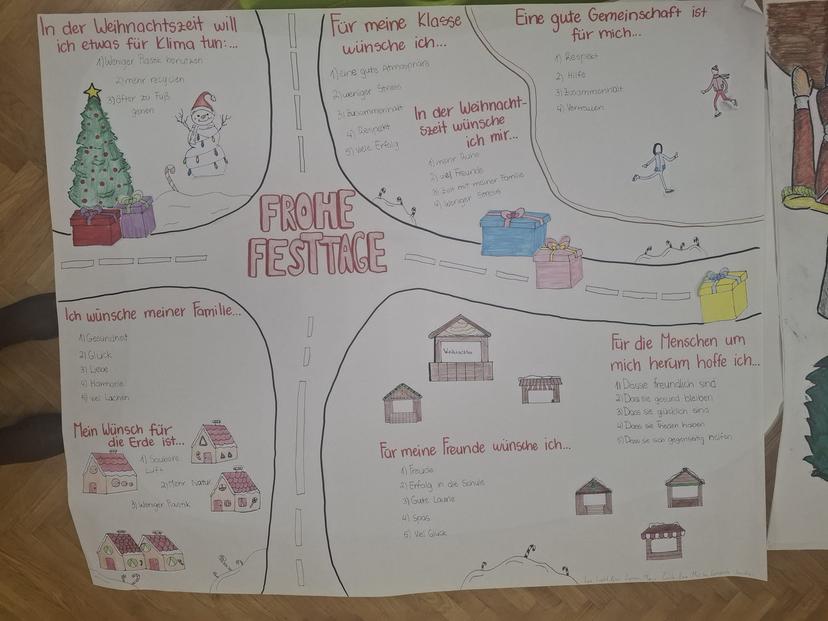 In der Weihnachtszeit will
ich etwas für Klima tun:...
1) Weniger Plastik benutzen
2) mehr recyclen
3) öfter zu Fuß
gehen
Für meine Klasse
wünsche ich...
1) eine gute Atmosphäre
2) weniger Stress
3) Zusammenhalt
4) Respekt
5) viele Erfolg
In der Weihnacht-
szeit wünsche
ich mir...
1) mehr Ruhe
2) viel Freunde
3) Zeit mit meiner Familie
4) weniger Stress
Eine gute Gemeinschaft ist
für mich...
1) Respekt
2) Hilfe
3) Zusammenhalt
4) Vertrauen
FROHE
FESTTAGE
Ich wünsche meiner Familie...
1) Gesundheit
2) Glück
3) Liebe
4) Harmonie
5) viel Lachen
Mein Wunsch für
die Erde ist...
1) Saubere
Luft
2) Mehr Natur
3) Weniger Plastik
Für meine Freunde wünsche ich...
1) Freude
2) Erfolg in die Schule
3) Gute Laune
4) Spas
5) Viel Glück
Für die Menschen um
mich herum hoffe ich...
1) Dasse freundlich sind
2) Dass sie gesund bleiben
3) Dass sie glücklich sind
4) Dass sie Frieden haben
5) Dass sie sich gegenseitig helfen